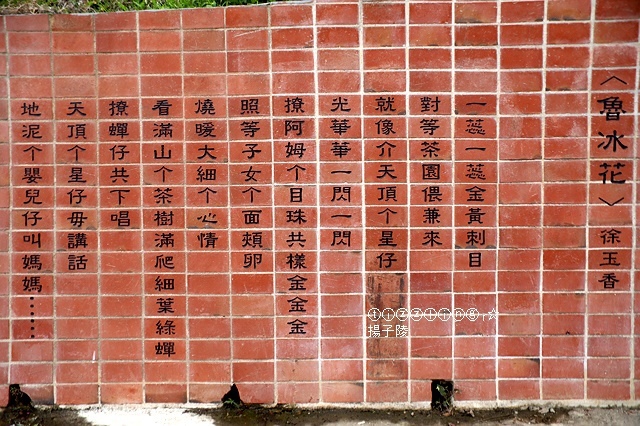 〈魯冰花〉 徐玉香
一蕊一蕊金黃刺目
對等茶園偎兼來
就像介天頂个星仔
光華華一閃一閃
撩阿姆个目珠共樣金金金
照等子女个面頰卵
燒暖大細个心情
看滿山个茶樹滿爬細葉綠蟬
撩蟬仔共下唱
天頂个星仔毋講話
地泥个嬰兒仔叫媽媽……
ⓣⓘⓩⓩⓛⓘⓝⓖ,☆
揚子陵